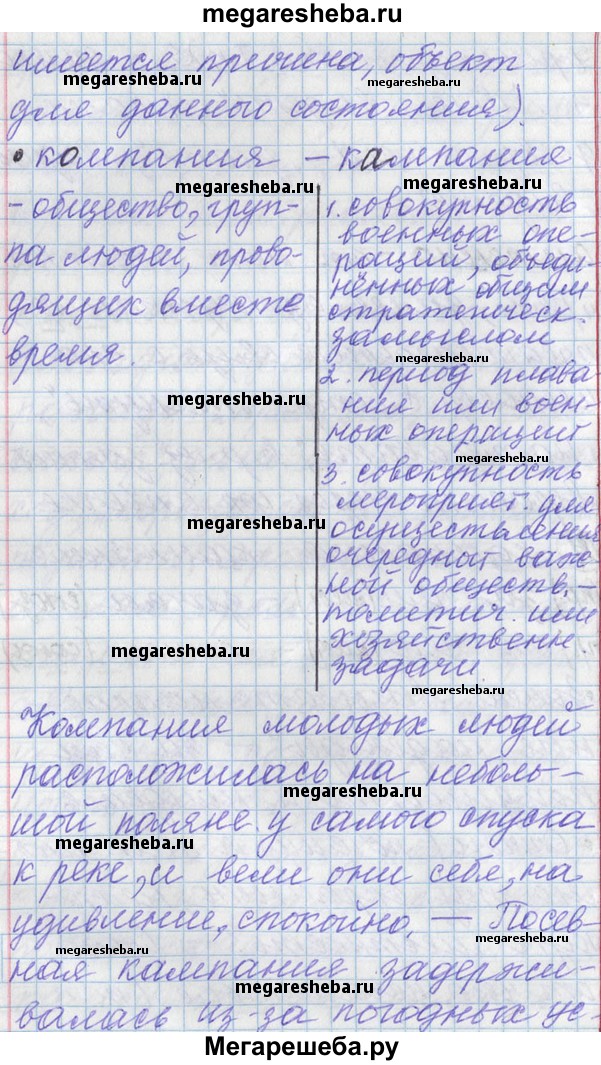 megaresheba.ru
имеется причина, объект
megaresheba.ru
megaresheba.ru
для данного состояния).
• компания – кампания
megaresheba.ru
megaresheba.ru
- общество, груп-
па людей, прово-
дящих вместе
время.
megaresheba.ru
megaresheba.ru
megaresheba.ru
1. совокупность
военных опе-
раций, объеди-
нённых общим
стратегическ.
замыслом
megaresheba.ru
2. период плава-
ния или воен-
ных операций
megaresheba.ru
3. совокупность
мероприят. для
осуществления
очередной важ-
ной обществ.-
политич. или
хозяйственн
задачи.
megaresheba.ru
Компания молодых людей
расположилась на неболь-
megaresheba.ru
шой поляне у самого спуска
к реке, и вели они себя, на
удивление, спокойно. — Посев-
megaresheba.ru
megaresheba.ru
ная кампания задержи-
megaresheba.ru
валась из-за погодных ус-
Мегарешеба.ру